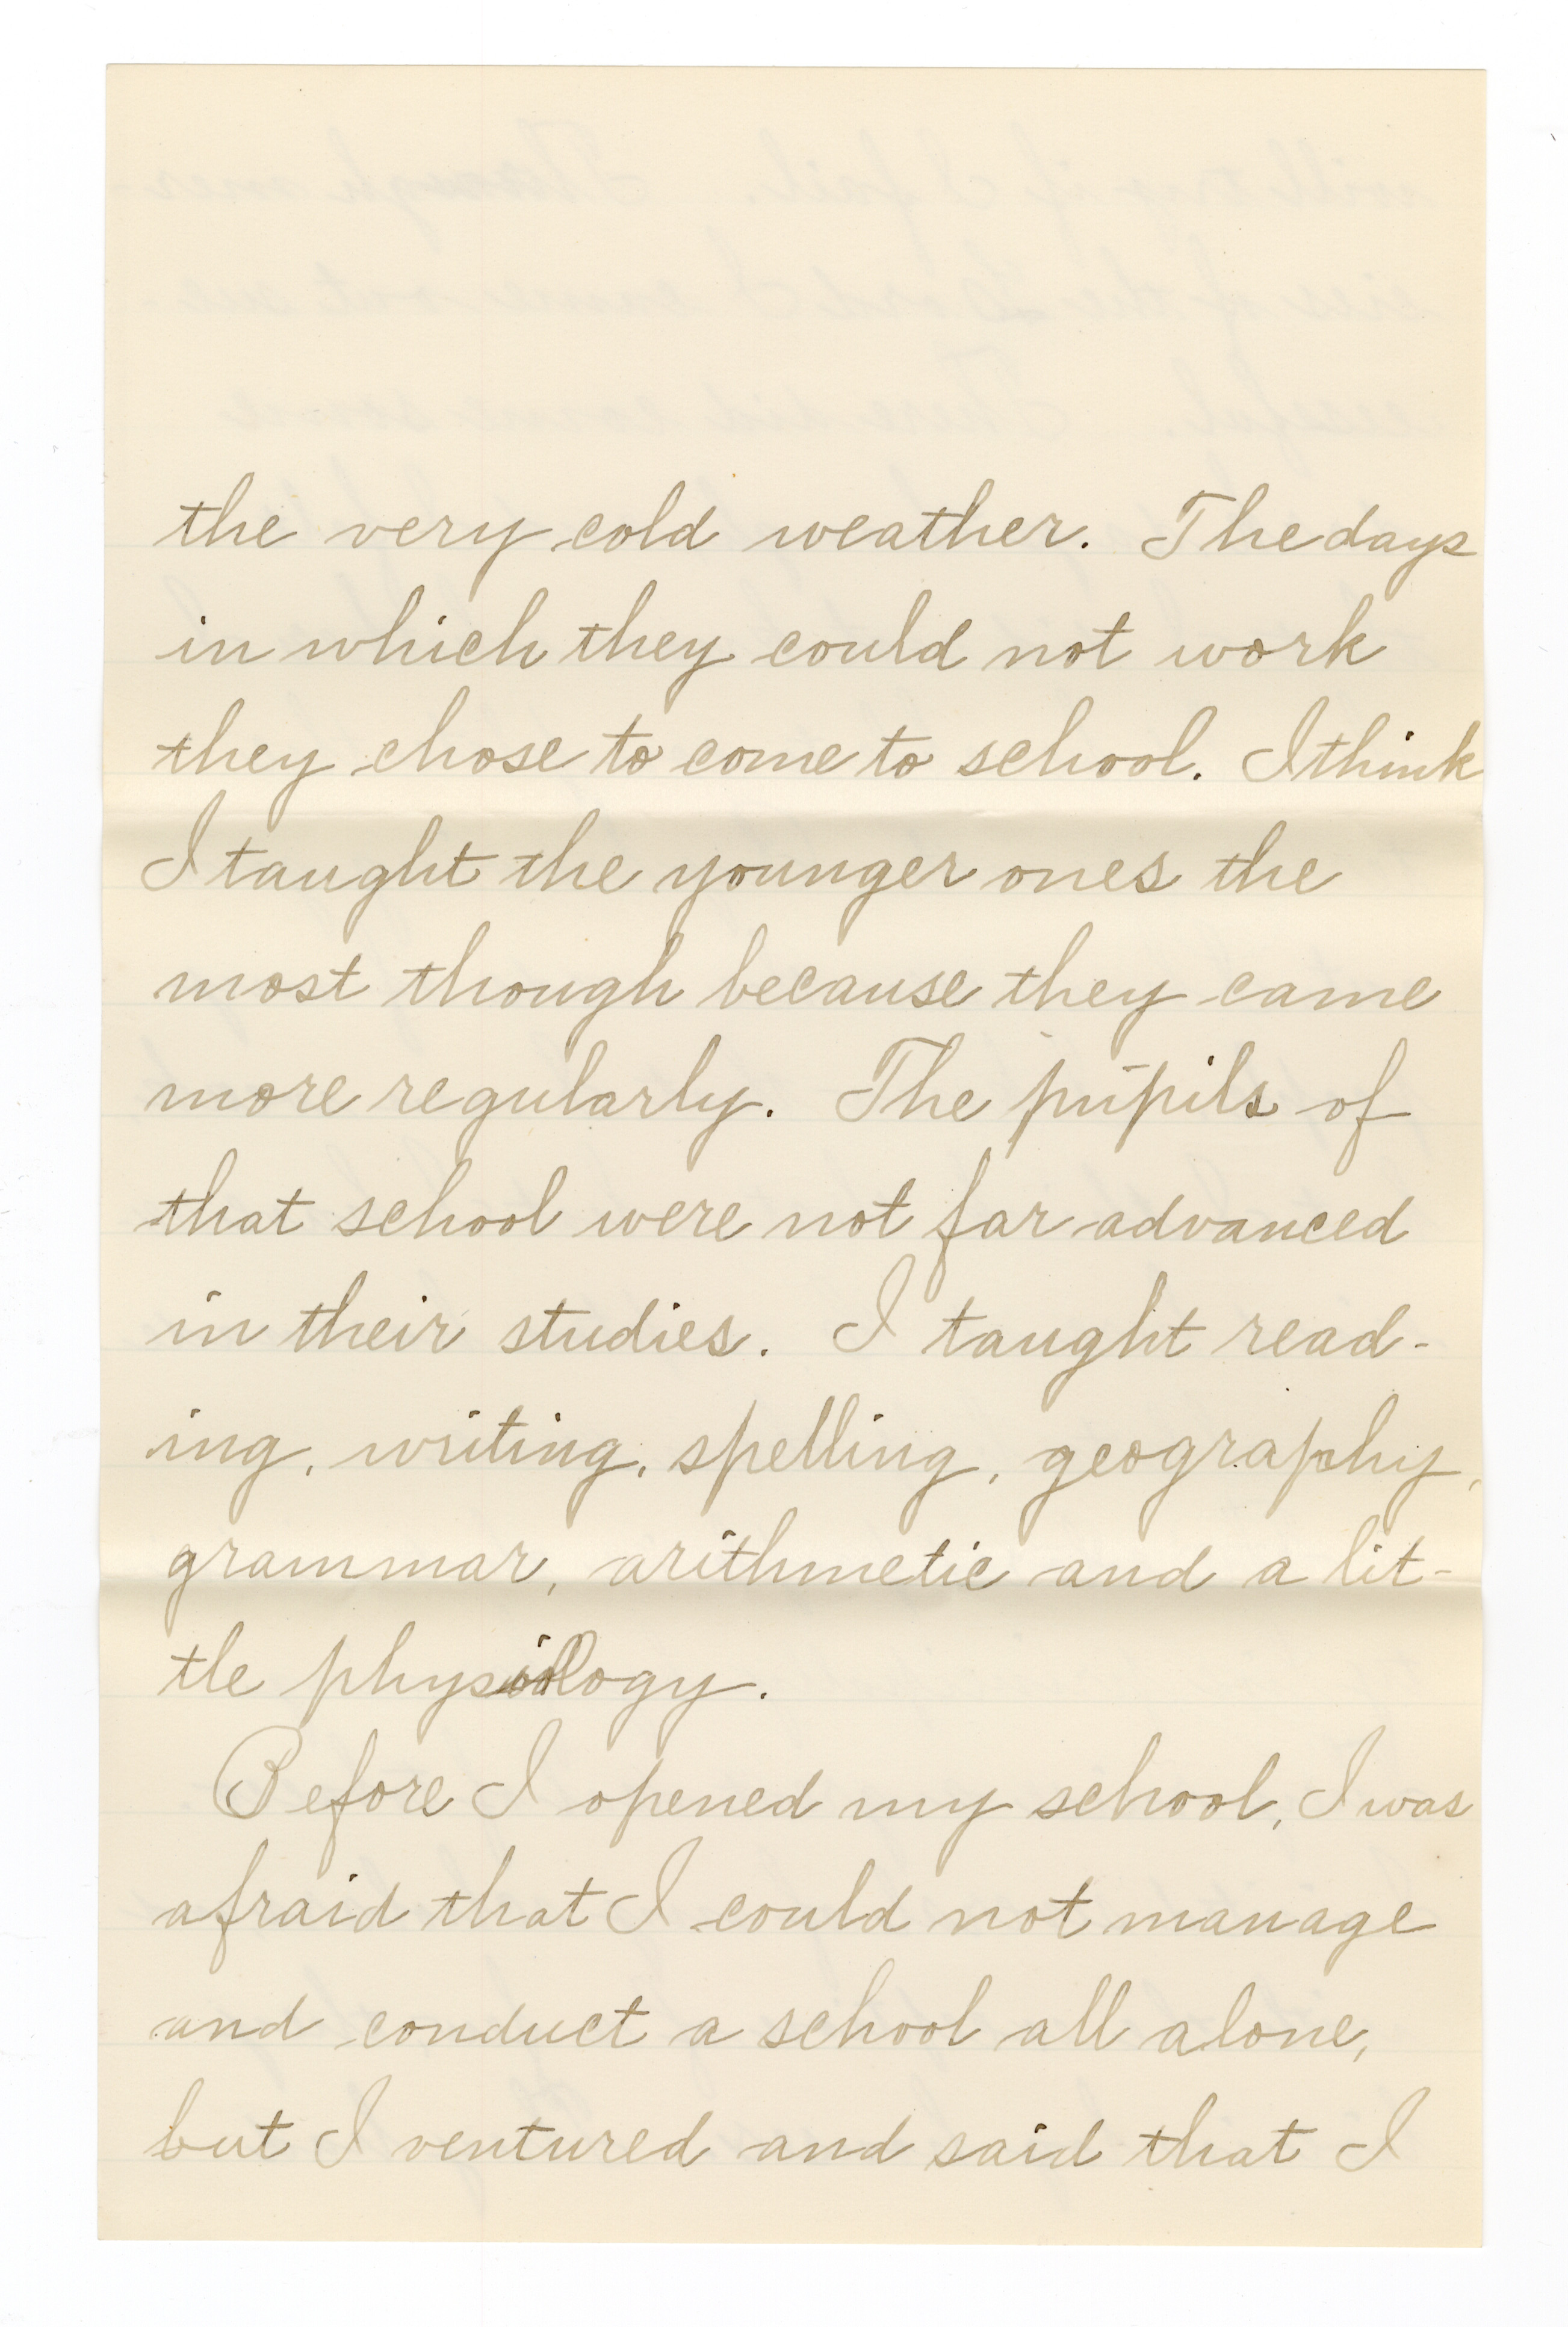 the very cold weather. The days
in which they could not work
they chose to come to school. I think
I taught the younger ones the
most though because they came
more regularly. The pupils of
that school were not far advanced
in their studies. I taught read-
ing, writing, spelling, geography,
grammar, arithmetic and a lit-
tle physiology.
Before I opened my school, I was
afraid that I could not manage
and conduct a school all alone,
but I ventured and said that I